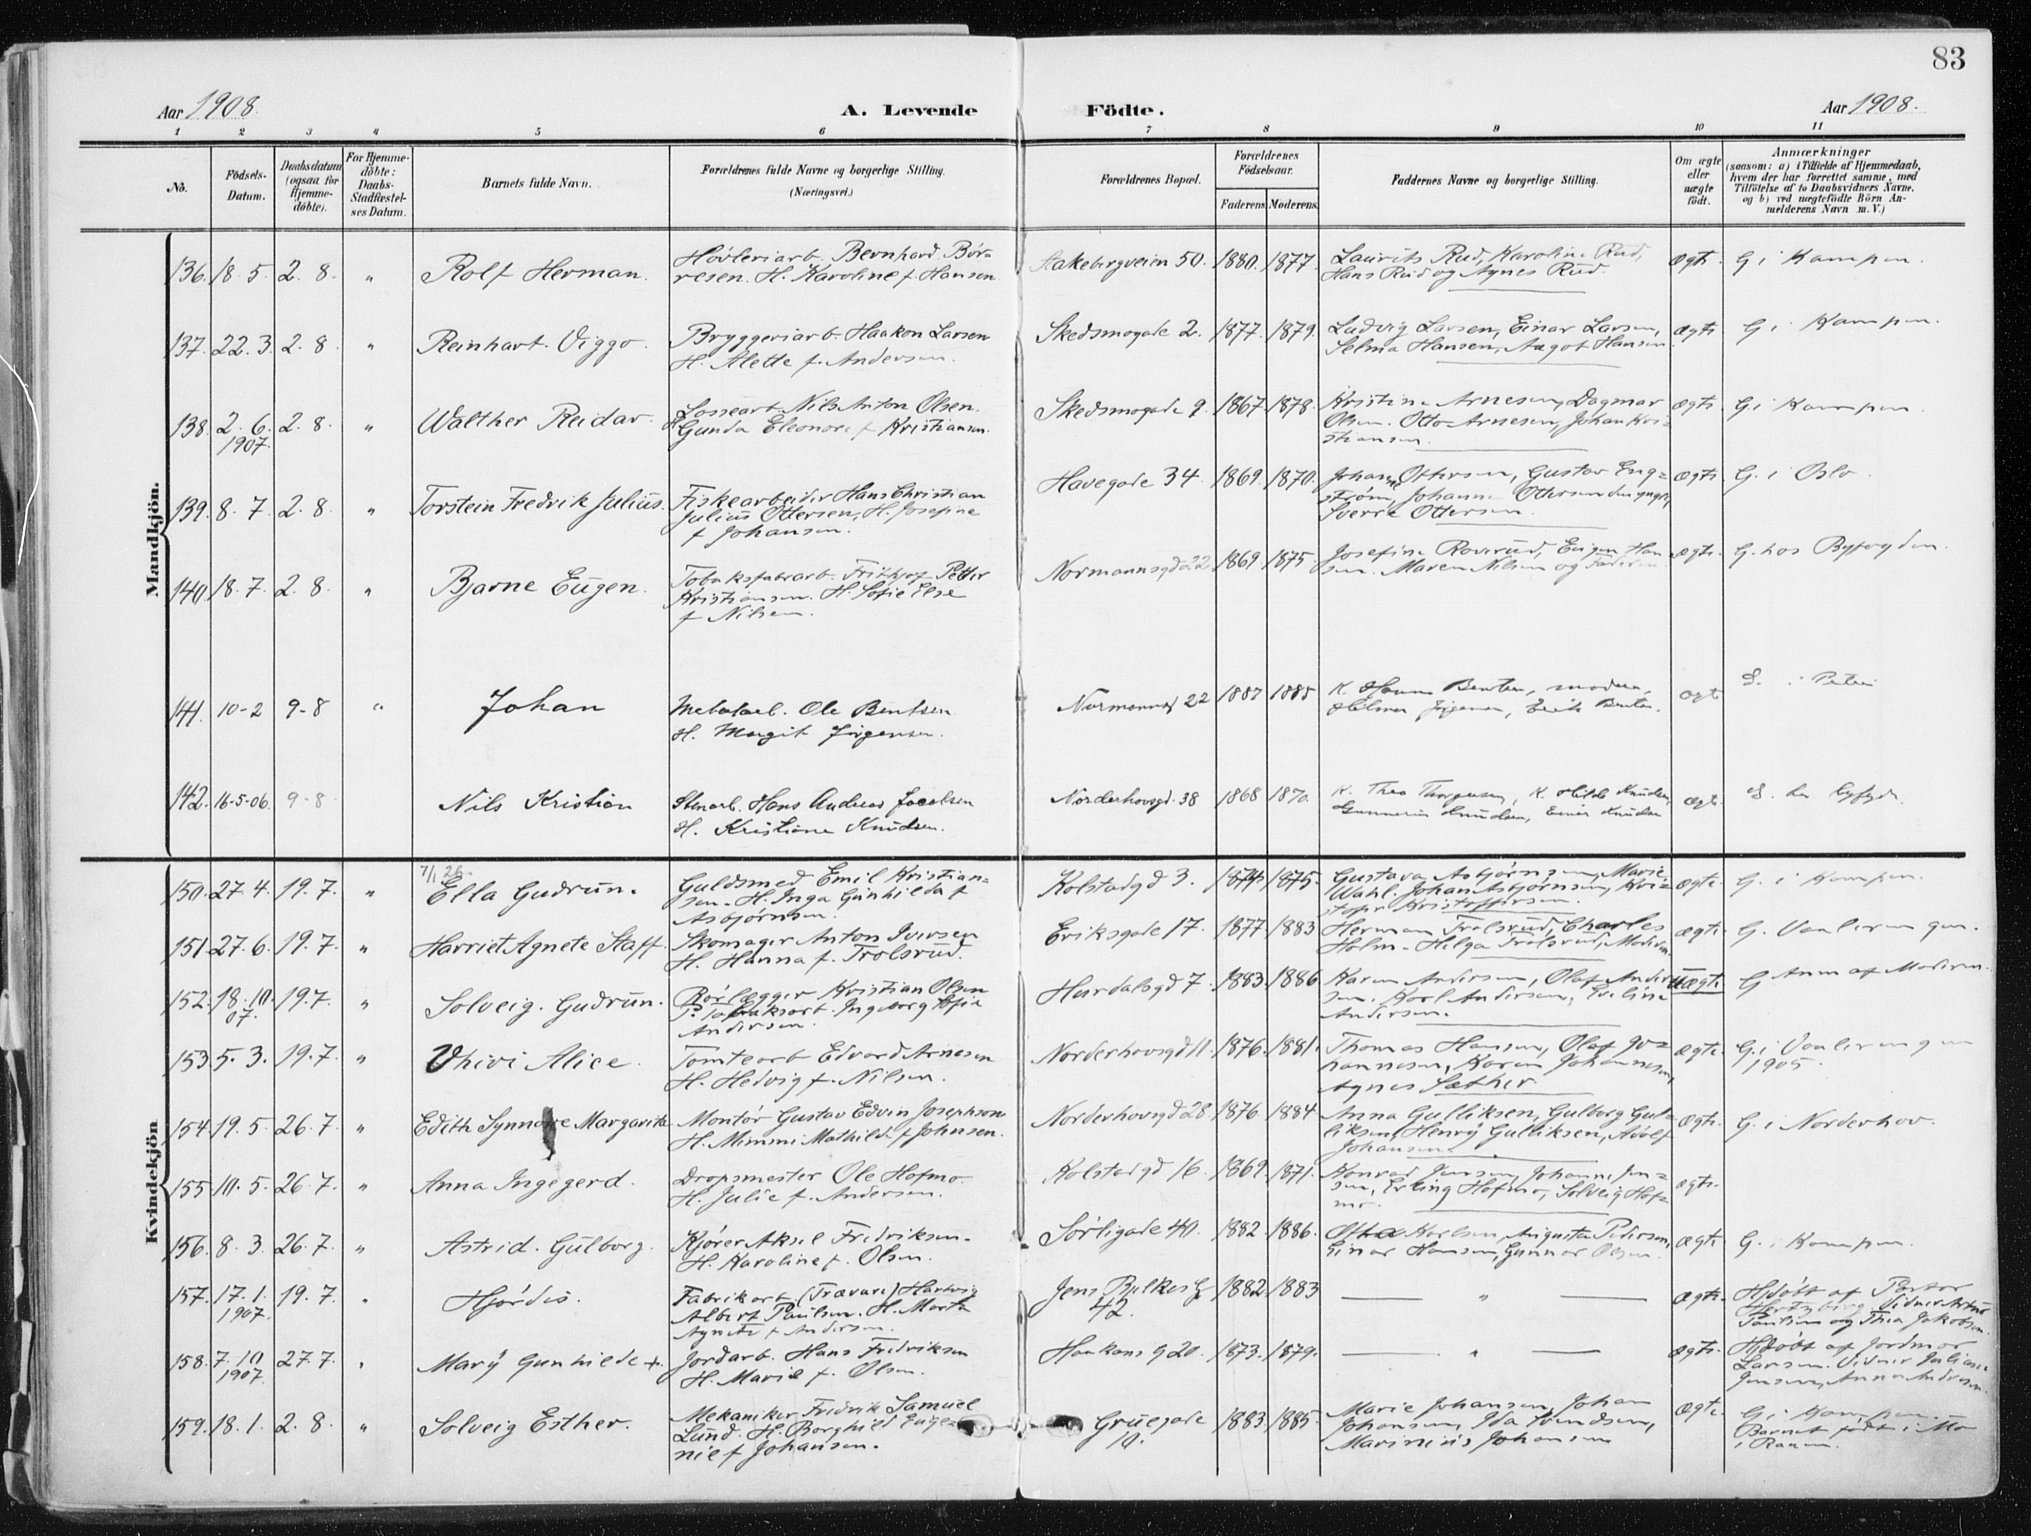 83
Aar 1908.
A. Levende Födte.
Aar 1908.
1 2 3 4 5 6 7 8 9 10 11
No.
Födsels-
Datum.
Daabsdatum
(ogsaa for
Hjemme-
döbte).
For Hjemme-
döbte:
Daabs-
Stadfæstel-
ses Datum.
Barnets fulde Navn.
Forældrenes fulde Navne og borgerlige Stilling.
(Næringsvei.)
Forældrenes Bopæl.
Forældrenes
Födselsaar.
Faderens. Moderens.
Faddernes Navne og borgerlige Stilling.
Om ægte
eller
uægte
födt.
Anmærkninger
(saasom: a) i Tilfælde af Hjemmedaab,
hvem der har forrettet samme, med
Tilföielse af to Daabsvidners Navne,
og b) ved uægtefödte Börn An-
melderens Navn m. V.)
Mandkjön.
136. 18-5. 2. 8. " Rolf Herman.
Høvleriarb. Bernhard Bör-
resen. H. Karoline f. Hansen
Stakebergveien 50. 1880. 1877.
Laurits Rud, Karoline Rud,
Hans Rud og Agnes Rud.
ægte. G. i Kampen.
137. 22.3. 2. 8. " Reinhart Viggo.
Bryggeriarb. Haakon Larsen
H. Alette f. Andersen.
Skedsmogade 2. 1877. 1879.
Ludvig Larsen, Einar Larsen,
Selma Hansen, Aagot Hansen
ægte. G. i Kampen.
138. 2. 6. 1907. 2. 8. " Walther Reidar.
Lossearb. Nils Anton Olsen.
H. Gunda Eleonore f. Kristiansen.
Skedsmogade 9. 1867. 1878.
Kristine Arnesen, Dagmar
Olsen. Otto Arnesen, Johan Kri-
stiansen.
ægte. G. i Kampen.
139. 8. 7. 2. 8. " Torstein Fredrik Julius.
Fiskearbeider Hans Christian
Julius Ottersen, H. Josefine
f. Johansen.
Havegade 34. 1869. 1870.
Johan Ottersen, Gustav Eng-
strøm, Johanne Ottersen den yngre,
Sverre Ottersen.
ægte. G. i Oslo.
140. 18. 7. 2. 8. " Bjarne Eugen.
Tobaksfabarb. Fritjof Petter
Kristiansen. H. Sofie Else
f. Nilsen.
Normannsgd 22 1869 1875.
Josefine Roverud, Eugen Han-
sen. Maren Nilsen og Faderen
ægte. G. hos Byfogden.
141. 10-2 9-8 " Johan
Ole Bentsen
H. Margit Jörgensen.
Normannsg 22 1887 1885
ægt Petri
142. 16-5-06. 9-8 Nils Kristian
Stenarb. Hans Andreas Jacobsen
H. Kristiane Knudsen.
Norderhovsgd. 38 1868 1870.
K. Thea Thorgersen, K. Hilda Knudsen,
Gunnerius Knudsen, Einar Knudsen
ægt.
Kvindekjön
150. 27.4. 19.7. " 7/1 26. Ella Gudrun.
Guldsmed Emil Kristian-
sen. H. Inga Gunhilda f.
Asbjørnsen.
Kolstadgd 3. 1874. 1875.
Gustava Asbjørnsen, Marie
Wahl. Johan Asbjørnsen, Kri-
stofer Kristoffersen.
ægte. G. i Kampen.
151. 27.6. 19.7. " Harriet Agnete Staff.
Skomager Anton Iversen
H. Hanna f. Trolsrud.
Eriksgade 17. 1877 1883
Herman Trolsrud, Charles
Holm. Helga Trolsrud, Moderen.
ægte. G. Vaalerengen.
152. 18.10. 07. 19.7. " Solveig. Gudrun.
Rörlægger Kristian Olsen
P. Tobaksarb. Ingeborg Sofie
Andersen.
Hurdalsgd 7. 1883. 1886.
Karen Andersen, Olaf Ander-
sen. Karl Andersen, Eveline
Andersen.
uægte G Anm af Moderen.
153. 5. 3. 19.7. " Vhivi Alice.
Tomtearb Edvard Arnesen
H. Hedvig f. Nilsen.
Norderhovsgd 11. 1876. 1881.
Thomas Hansen, Olaf Jo-
hannesen, Karen Johannesen,
Agnes Sæther.
ægte. G. i Vaalerengen
1905.
154. 19.5. 26.7. " Edith Synnøve Margarita
Montör Gustav Edvin Josephson
H. Mimmi Mathilde f. Johnsen.
Norderhovsgd 28 1876. 1884.
Anna Gulliksen, Gulborg Gul-
liksen, Henry Gulliksen, Adolf
Johansen.
ægte. G. i Norderhov.
155. 10.5. 26.7. " Anna Ingegerd.
Dropsmester Ole Hofmo.
H. Julie f. Andersen.
Kolstadgd 16. 1869. 1871.
Konrad Jensen, Johanne Jen-
sen, Erling Hofmo, Solveig Hof-
mo.
ægte.
156. 8. 3. 26.7. " Astrid. Gulborg.
Kjörer Aksel Fredriksen.
H. Karoline f. Olsen.
Sörligade 40. 1882. 1886.
Karlsen, Augusta Pedersen,
Einar Hansen, Gunnar Olsen.
ægte. G. i Kampen.
157. 17.1. 1907. 19.7. " Hjördis.
Fabrikarb. (Trævare) Hartvig
Albert Paulsen. H. Marta
Agnete f. Andersen.
Jens Bjelkesg 42. 1882. 1883 "
ægte. Hjdöbt af Pastor
Hertzberg. Vidner Artur
Paulsen og Thea Jakobsen.
158. 7.10 1907. 27.7. " Mary Gunhilde +.
Jordarb. Hans Fredriksen
H. Marie f. Olsen.
Haakons g 20. 1873. 1879. "
ægte. Hjdöbt af Jordmor
Larsen. Vidner Juliane
Jensen, Anna Andersen.
159. 18.1. 2. 8. " Solveig Esther.
Mekaniker Fredrik Samuel
Lund. H. Borghild Euge-
nie f. Johansen.
Gruegade
10. 1883. 1885.
Marie Johansen, Johan
Johansen, Ida Svendsen,
Marinius Johansen
ægte. G. i Kampen.
Barnet født i Mo
i Ranen.